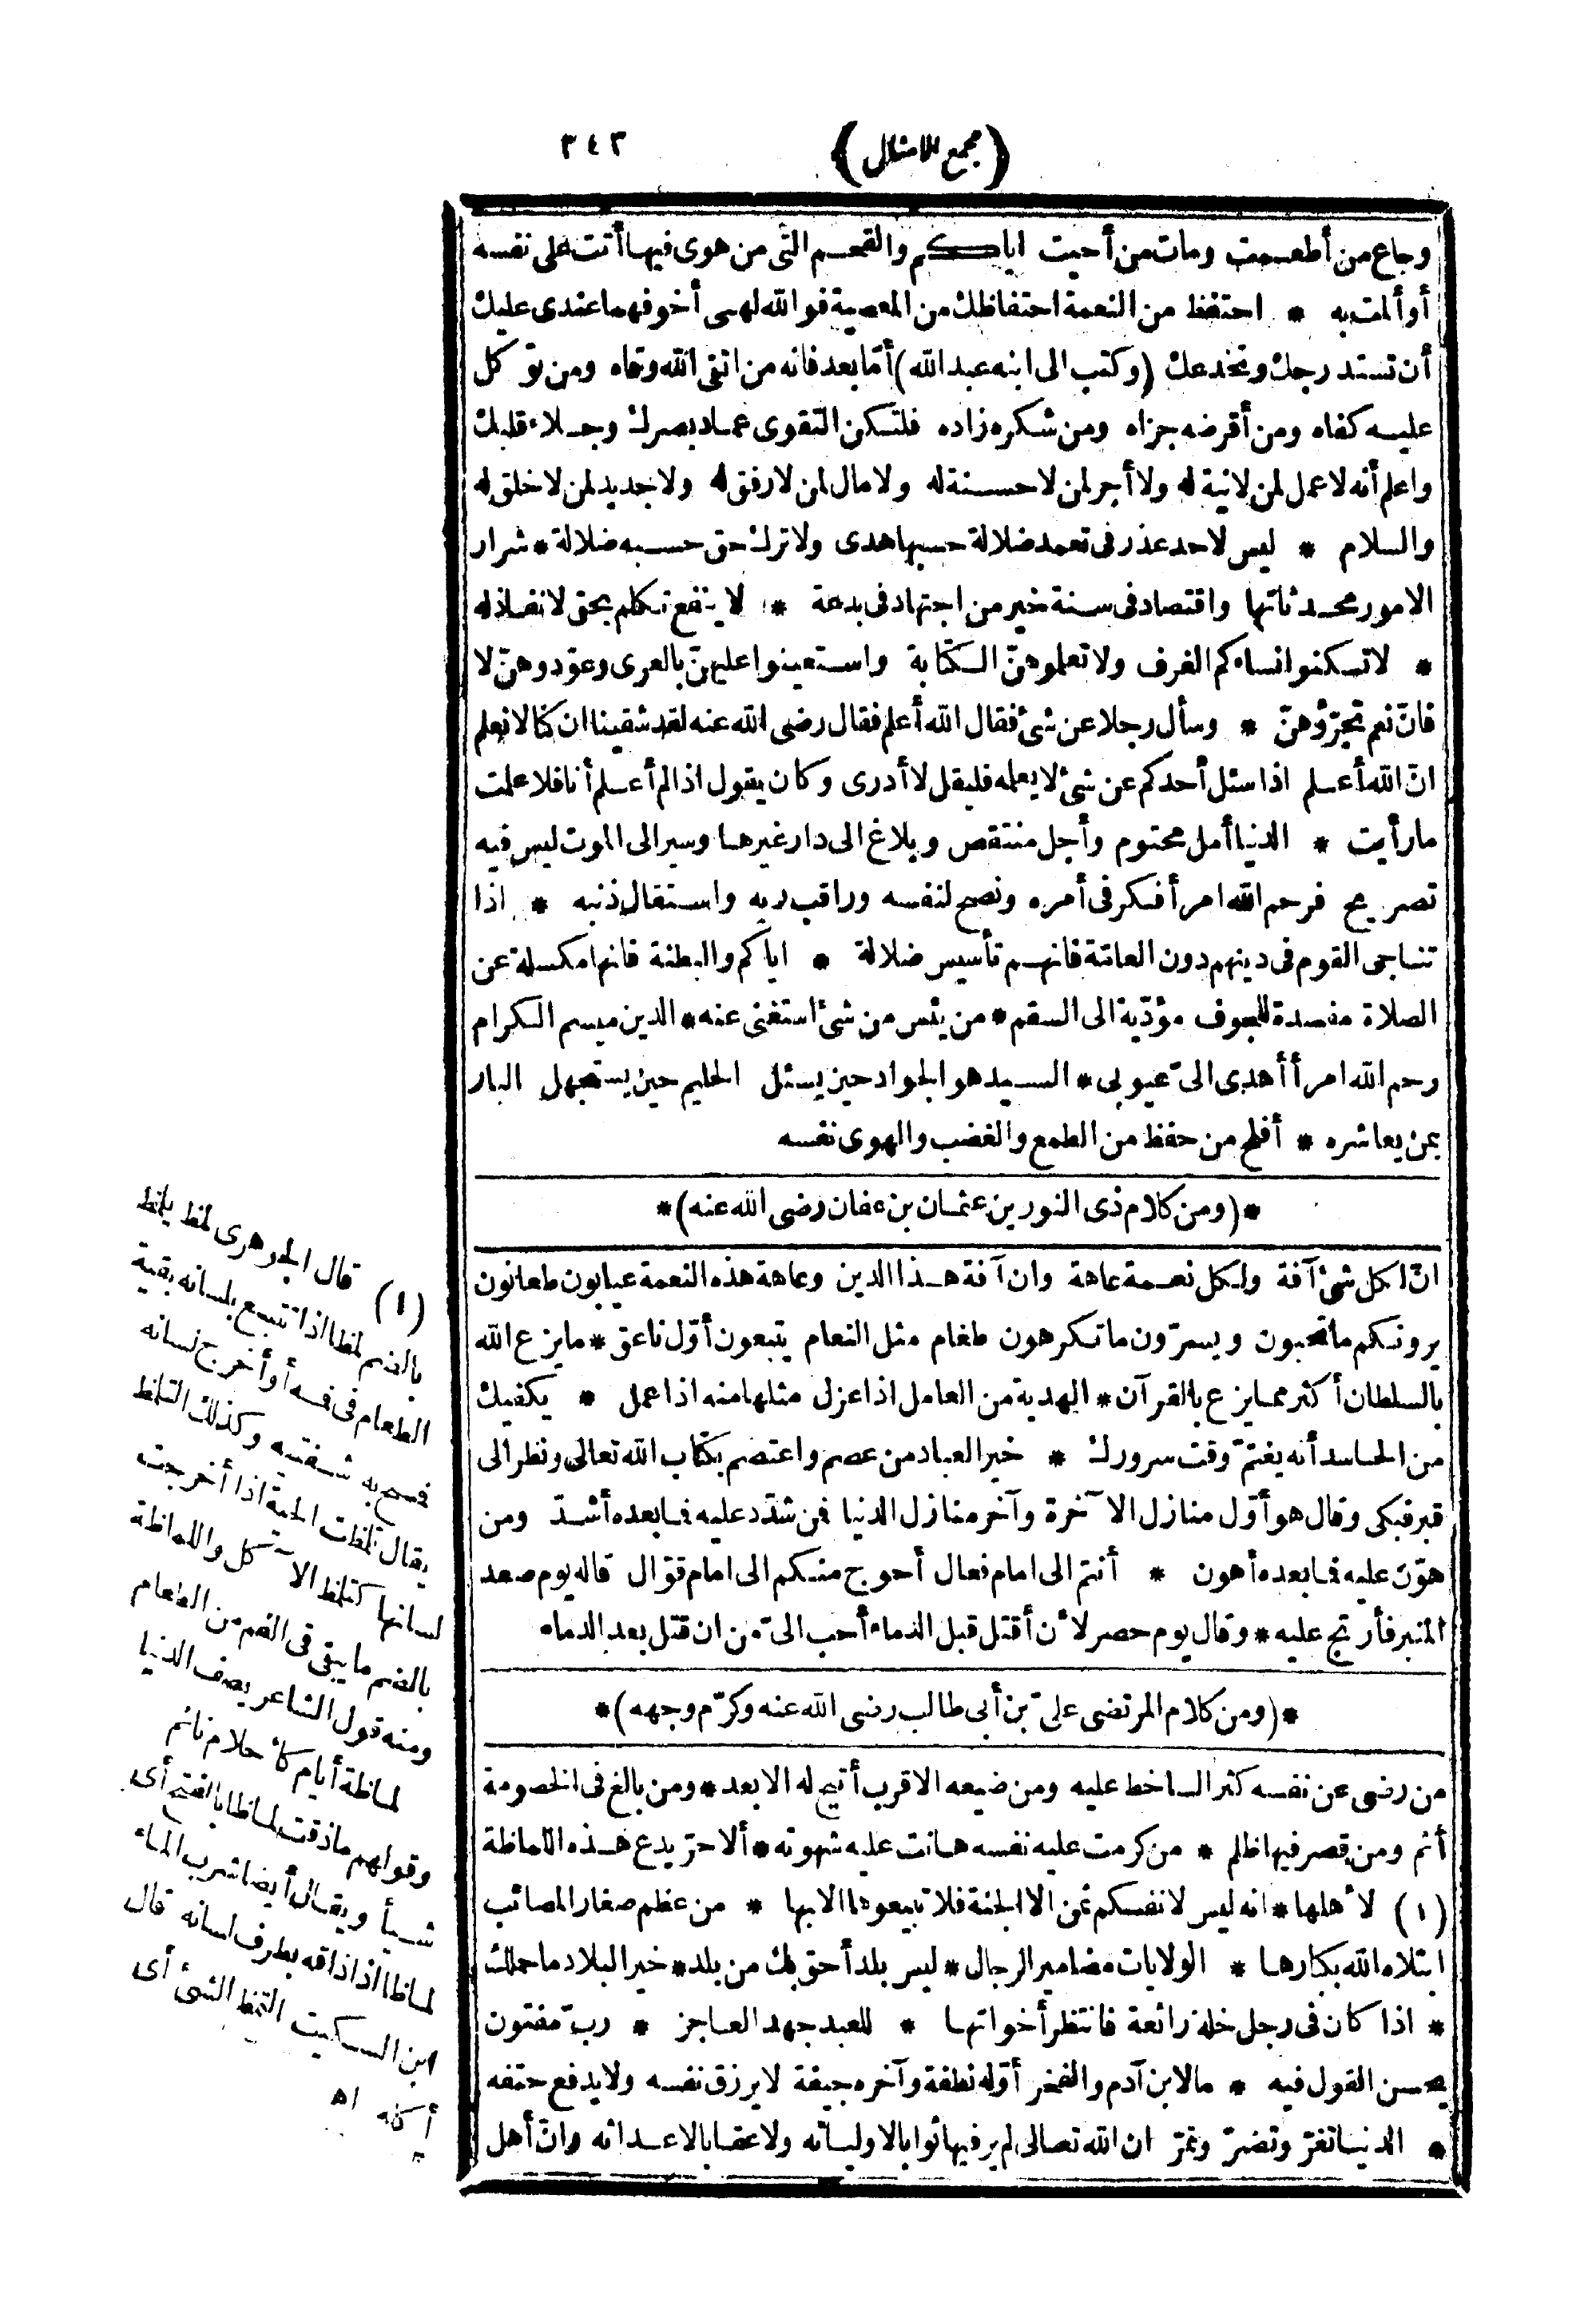 (مجمع الامثال) ٣٤٣
وجاع من أطعمت ومات من أحيت اياكم والقحم التى من هوى فيها أتت على نفسه
أو ألمت به * احتفظ من النعمة احتفاظك من المعصية فوالله لهى أخوفهما عندى عليك
أن تستدرجك وتخدعك (وكتب الى ابنه عبد الله) أمّا بعد فانه من اتقى الله وقاه ومن توكل
عليه كفاه ومن أقرضه جزاه ومن شكره زاده فلتكن التقوى عماد بصرك وجلاء قلبك
واعلم أنه لا عمل لمن لا نية له ولا أجر لمن لا حسنة له ولا مال لمن لا رفق له ولا جديد لمن لا خلق له
والسلام * ليس لاحد عذر فى تعمد ضلالة حسبها هدى ولا ترك حق حسبه ضلالة * شرار
الامور محدثاتها واقتصاد فى سنة خير من اجتهاد فى بدعة * لا ينفع تكلم بحق لا نفاذ له
* لا تسكنوا نساءكم الغرف ولا تعلموهنّ الكتابة واستعينوا عليهنّ بالعرى وعوّدوهنّ لا
فانّ نعم تجرّؤهنّ * وسأل رجلا عن شئ فقال الله أعلم فقال رضى الله عنه لقد شقينا ان كنا لا نعلم
انّ الله أعلم اذا سئل أحدكم عن شئ لا يعلمه فليقل لا أدرى وكان يقول اذا لم أعلم أنا فلا علمت
ما رأيت * الدنيا أمل محتوم وأجل منتقص وبلاغ الى دار غيرها وسير الى الموت ليس فيه
تصريح فرحم الله امرأ فكر فى أمره ونصح لنفسه وراقب ربه واستقال ذنبه * اذا
تناجى القوم فى دينهم دون العامّة فانهم تأسيس ضلالة * اياكم والبطنة فانها مكسلة عن
الصلاة مفسدة للجوف مؤدّية الى السقم * من يئس من شئ استغنى عنه * الدين ميسم الكرام
رحم الله امرأ أهدى الىّ عيوبى * السيد هو الجواد حين يسئل الحليم حين يستجهل البار
بمن يعاشره * أفلح من حفظ من الطمع والغضب والهوى نفسه
*(ومن كلام ذى النورين عثمان بن عفان رضى الله عنه)*
انّ لكل شئ آفة ولكل نعمة عاهة وان آفة هذا الدين وعاهة هذه النعمة عيابون طعانون
يرونكم ما تحبون ويسرّون ما تكرهون طغام مثل النعام يتبعون أوّل ناعق * ما يزع الله
بالسلطان أكثر مما يزع بالقرآن * الهدية من العامل اذا عزل مثلها منه اذا عمل * يكفيك
من الحاسد أنه يغتمّ وقت سرورك * خير العباد من عصم واعتصم بكتاب الله تعالى ونظر الى
قبر فبكى وقال هو أوّل منازل الآخرة وآخر منازل الدنيا فمن شدّد عليه فما بعده أشدّ ومن
هوّن عليه فما بعده أهون * أنتم الى امام فعال أحوج منكم الى امام قوّال قاله يوم صعد
المنبر فأرتج عليه * وقال يوم حصر لأن أقتل قبل الدماء أحب الىّ من ان قتل بعد الدماء
*(ومن كلام المرتضى علىّ بن أبى طالب رضى الله عنه وكرّم وجهه)*
من رضى عن نفسه كثر الساخط عليه ومن ضيعه الاقرب أتيح له الابعد * ومن بالغ فى الخصومة
أثم ومن قصر فيها ظلم * من كرمت عليه نفسه هانت عليه شهوته * ألا حرّ يدع هذه اللماظة
(١) لأهلها * انه ليس لانفسكم ثمن الا الجنة فلا تبيعوها الا بها * من عظم صغار المصائب
ابتلاه الله بكبارها * الولايات مضامير الرجال * ليس بلد أحق بك من بلد * خير البلاد ما حملك
* اذا كان فى رجل خلة رائعة فانتظر أخواتها * للعبد جهد العاجز * ربّ مفتون
يحسن القول فيه * ما لابن آدم والفخر أوّله نطفة وآخره جيفة لا يرزق نفسه ولا يدفع حتفه
* الدنيا تغرّ وتضرّ وتمرّ ان الله تعالى لم يرفيها ثوابا لاوليائه ولا عقابا لاعدائه وانّ أهل
(١) قال الجوهرى لمظ يلمظ
بالضم لمظا اذا تتبع بلسانه بقية
الطعام فى فمه أو أخرج لسانه
فمسح به شفتيه وكذلك التلمظ
يقال تلمظت الحية اذا أخرجت
لسانها كتلمظ الآكل واللماظة
بالضم ما يبقى فى الفم من الطعام
ومنه قول الشاعر يصف الدنيا
لماظة أيام كأحلام نائم
وقولهم ما ذقت لماظا بالفتح أى
شيأ ويقال أيضا شرب الماء
لماظا اذا ذاقه بطرف لسانه قال
ابن السكيت التمظ الشئ أى
أكله اه